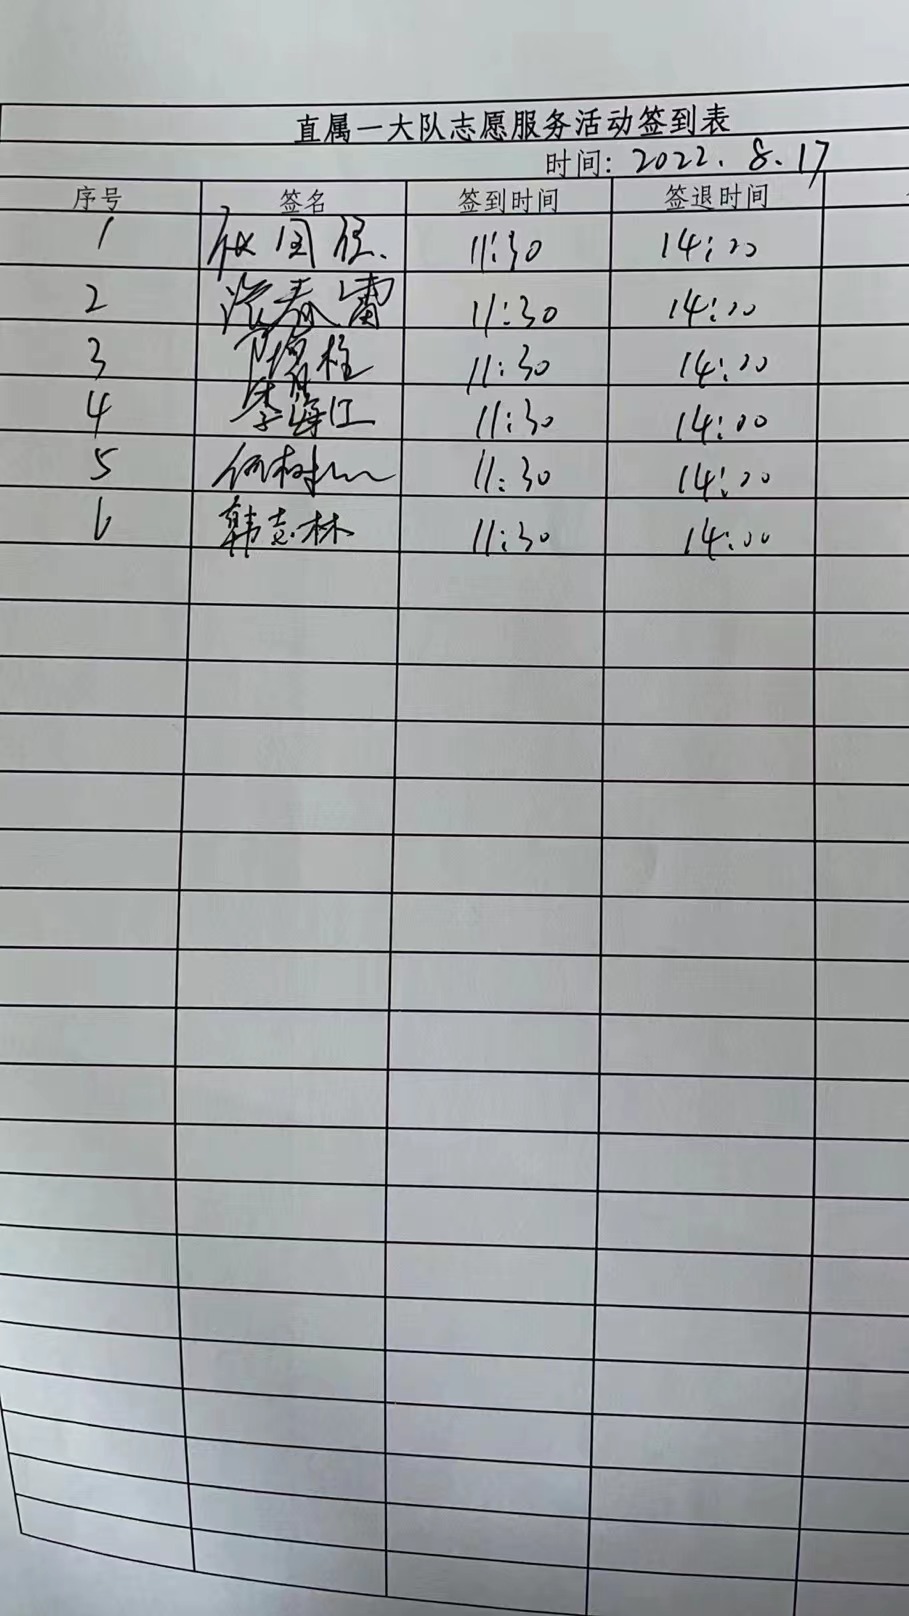 直属一大队志愿服务活动签到表
时间: 2022.8.17
序号 签名 签到时间 签退时间
1 国 11:30 14:00
2 春雷 11:30 14:00
3 柱 11:30 14:00
4 李海江 11:30 14:00
5 何树 11:30 14:00
6 韩志林 11:30 14:00